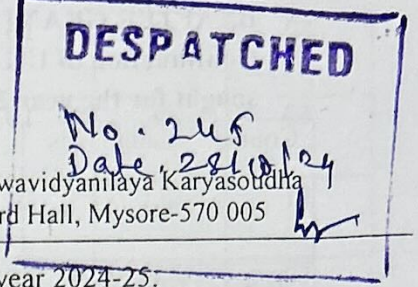 DESPATCHED
No. 245
Date, 28/10/24
wavidyanilaya Karyasoudha
rd Hall, Mysore-570 005
year 2024-25.